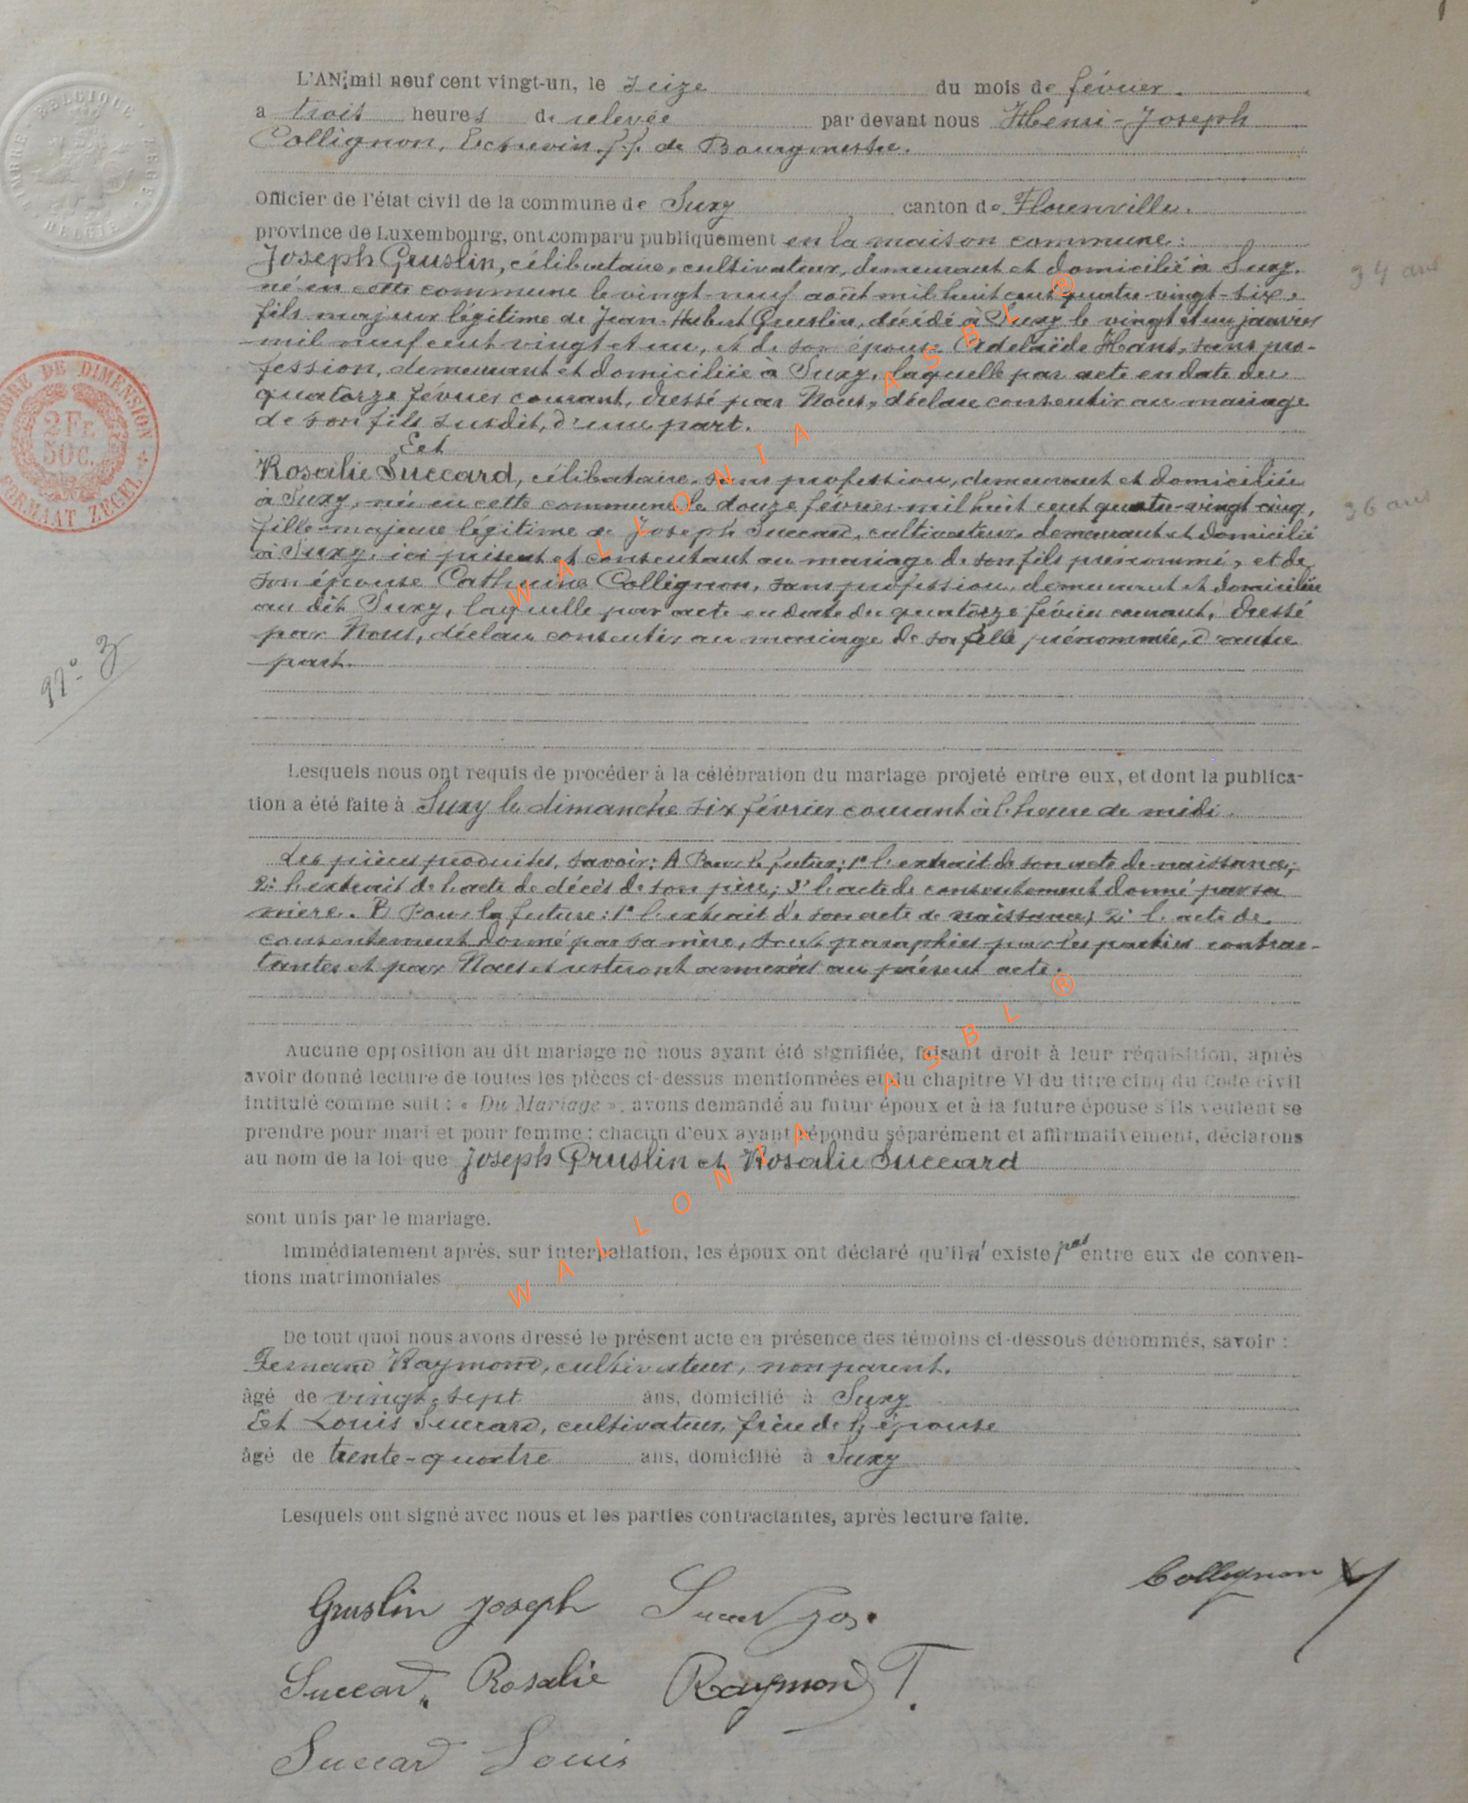 L'AN mil neuf cent vingt-un, le seize du mois de février.
a trois heures de relevée par devant nous Henri-Joseph
Collignon, Echevin f.f. de Bourgmestre.
Officier de l'état civil de la commune de Suxy canton de Florenville.
province de Luxembourg, ont comparu publiquement en la maison commune:
Joseph Gruslin, célibataire, cultivateur, demeurant et domicilié à Suxy.
né en cette commune le vingt-neuf août mil huit cent quatre-vingt-six,
34 ans
fils majeur légitime de Jean-Hubert Gruslin, décédé à Suxy le vingt et un janvier
mil neuf cent vingt et un, et de son épouse Adelaïde Hans, sans pro-
fession, demeurant et domiciliée à Suxy, laquelle par acte en date du
quatorze février courant, dressé par Nous, déclare consentir au mariage
de son fils susdit, d'une part.
Eet
Rosalie Succard, célibataire, sans profession, demeurant et domiciliée
à Suxy, née en cette commune le douze février mil huit cent quatre-vingt cinq,
36 ans
fille majeure légitime de Joseph Succard, cultivateur, demeurant et domicilié
à Suxy, ici présent et consentant au mariage de son fils prénommé, et de
son épouse Catherine Collignon, sans profession, demeurant et domiciliée
au dit Suxy, laquelle par acte en date du quatorze février courant, dressé
par Nous, déclare consentir au mariage de sa fille prénommée, d'autre
part.
N° 3
Lesquels nous ont requis de procéder à la célébration du mariage projeté entre eux, et dont la publica-
tion a été faite à Suxy le dimanche six février courant à l'heure de midi.
Les pièces produites, savoir: A Pour le futur: 1° l'extrait de son acte de naissance;
2° l'extrait de l'acte de décès de son père; 3° l'acte de consentement donné par sa
mère. B Pour la future: 1° l'extrait de son acte de naissance; 2° l'acte de
consentement donné par sa mère, tous paraphés par les parties contrac-
tantes et par Nous et resteront annexés au présent acte.
Aucune opposition au dit mariage ne nous ayant été signifiée, faisant droit à leur réquisition, après
avoir donné lecture de toutes les pièces ci-dessus mentionnées et du chapitre VI du titre cinq du Code civil
intitulé comme suit: « Du Mariage », avons demandé au futur époux et à la future épouse s'ils veulent se
prendre pour mari et pour femme: chacun d'eux ayant répondu séparément et affirmativement, déclarons
au nom de la loi que Joseph Gruslin et Rosalie Succard
sont unis par le mariage.
Immédiatement après, sur interpellation, les époux ont déclaré qu'il n'existe pas entre eux de conven-
tions matrimoniales
De tout quoi nous avons dressé le présent acte en présence des témoins ci-dessous dénommés, savoir:
Fernand Raymond, cultivateur, non parent.
âgé de vingt-sept ans, domicilié à Suxy
Et Louis Succard, cultivateur, frère de l'épouse
âgé de trente-quatre ans, domicilié à Suxy
Lesquels ont signé avec nous et les parties contractantes, après lecture faite.
Collignon
Gruslin Joseph Succard Jos.
Succard Rosalie Raymond F.
Succard Louis
BELGIQUE
BELGIË
TIMBRE DE DIMENSION
2 FR
50 C.
FORMAAT ZEGEL
WALLONIA ASBL ®
WALLONIA ASBL ®